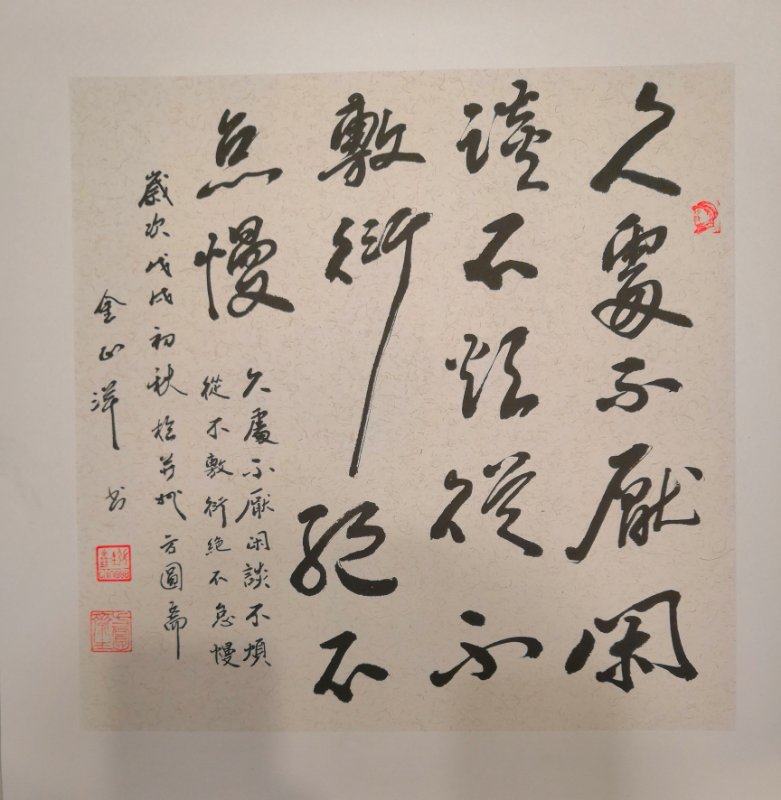 久處不厭閑
談不煩從不
敷衍絕不
怠慢
久處不厭閑談不煩
從不敷衍絕不怠慢
歲次戊戌初秋於 方圓齋
金正洋書